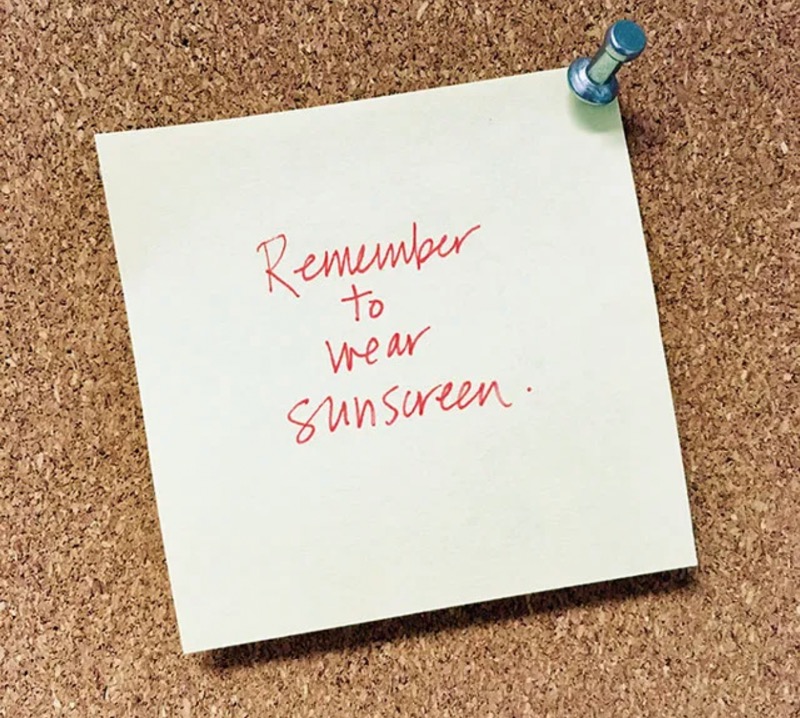 Remember
to
wear
sunscreen.